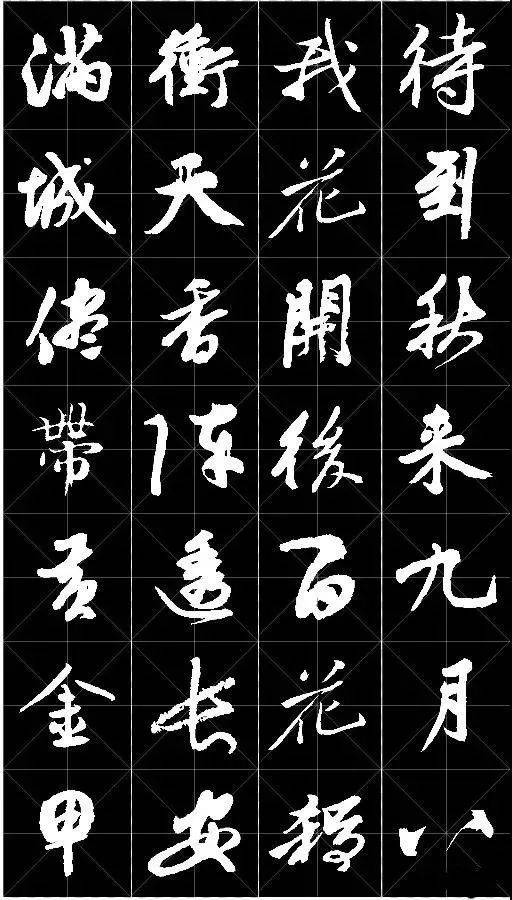 待到秋来九月八
我花開後百花殺
衝天香陣透長安
滿城儘帶黃金甲